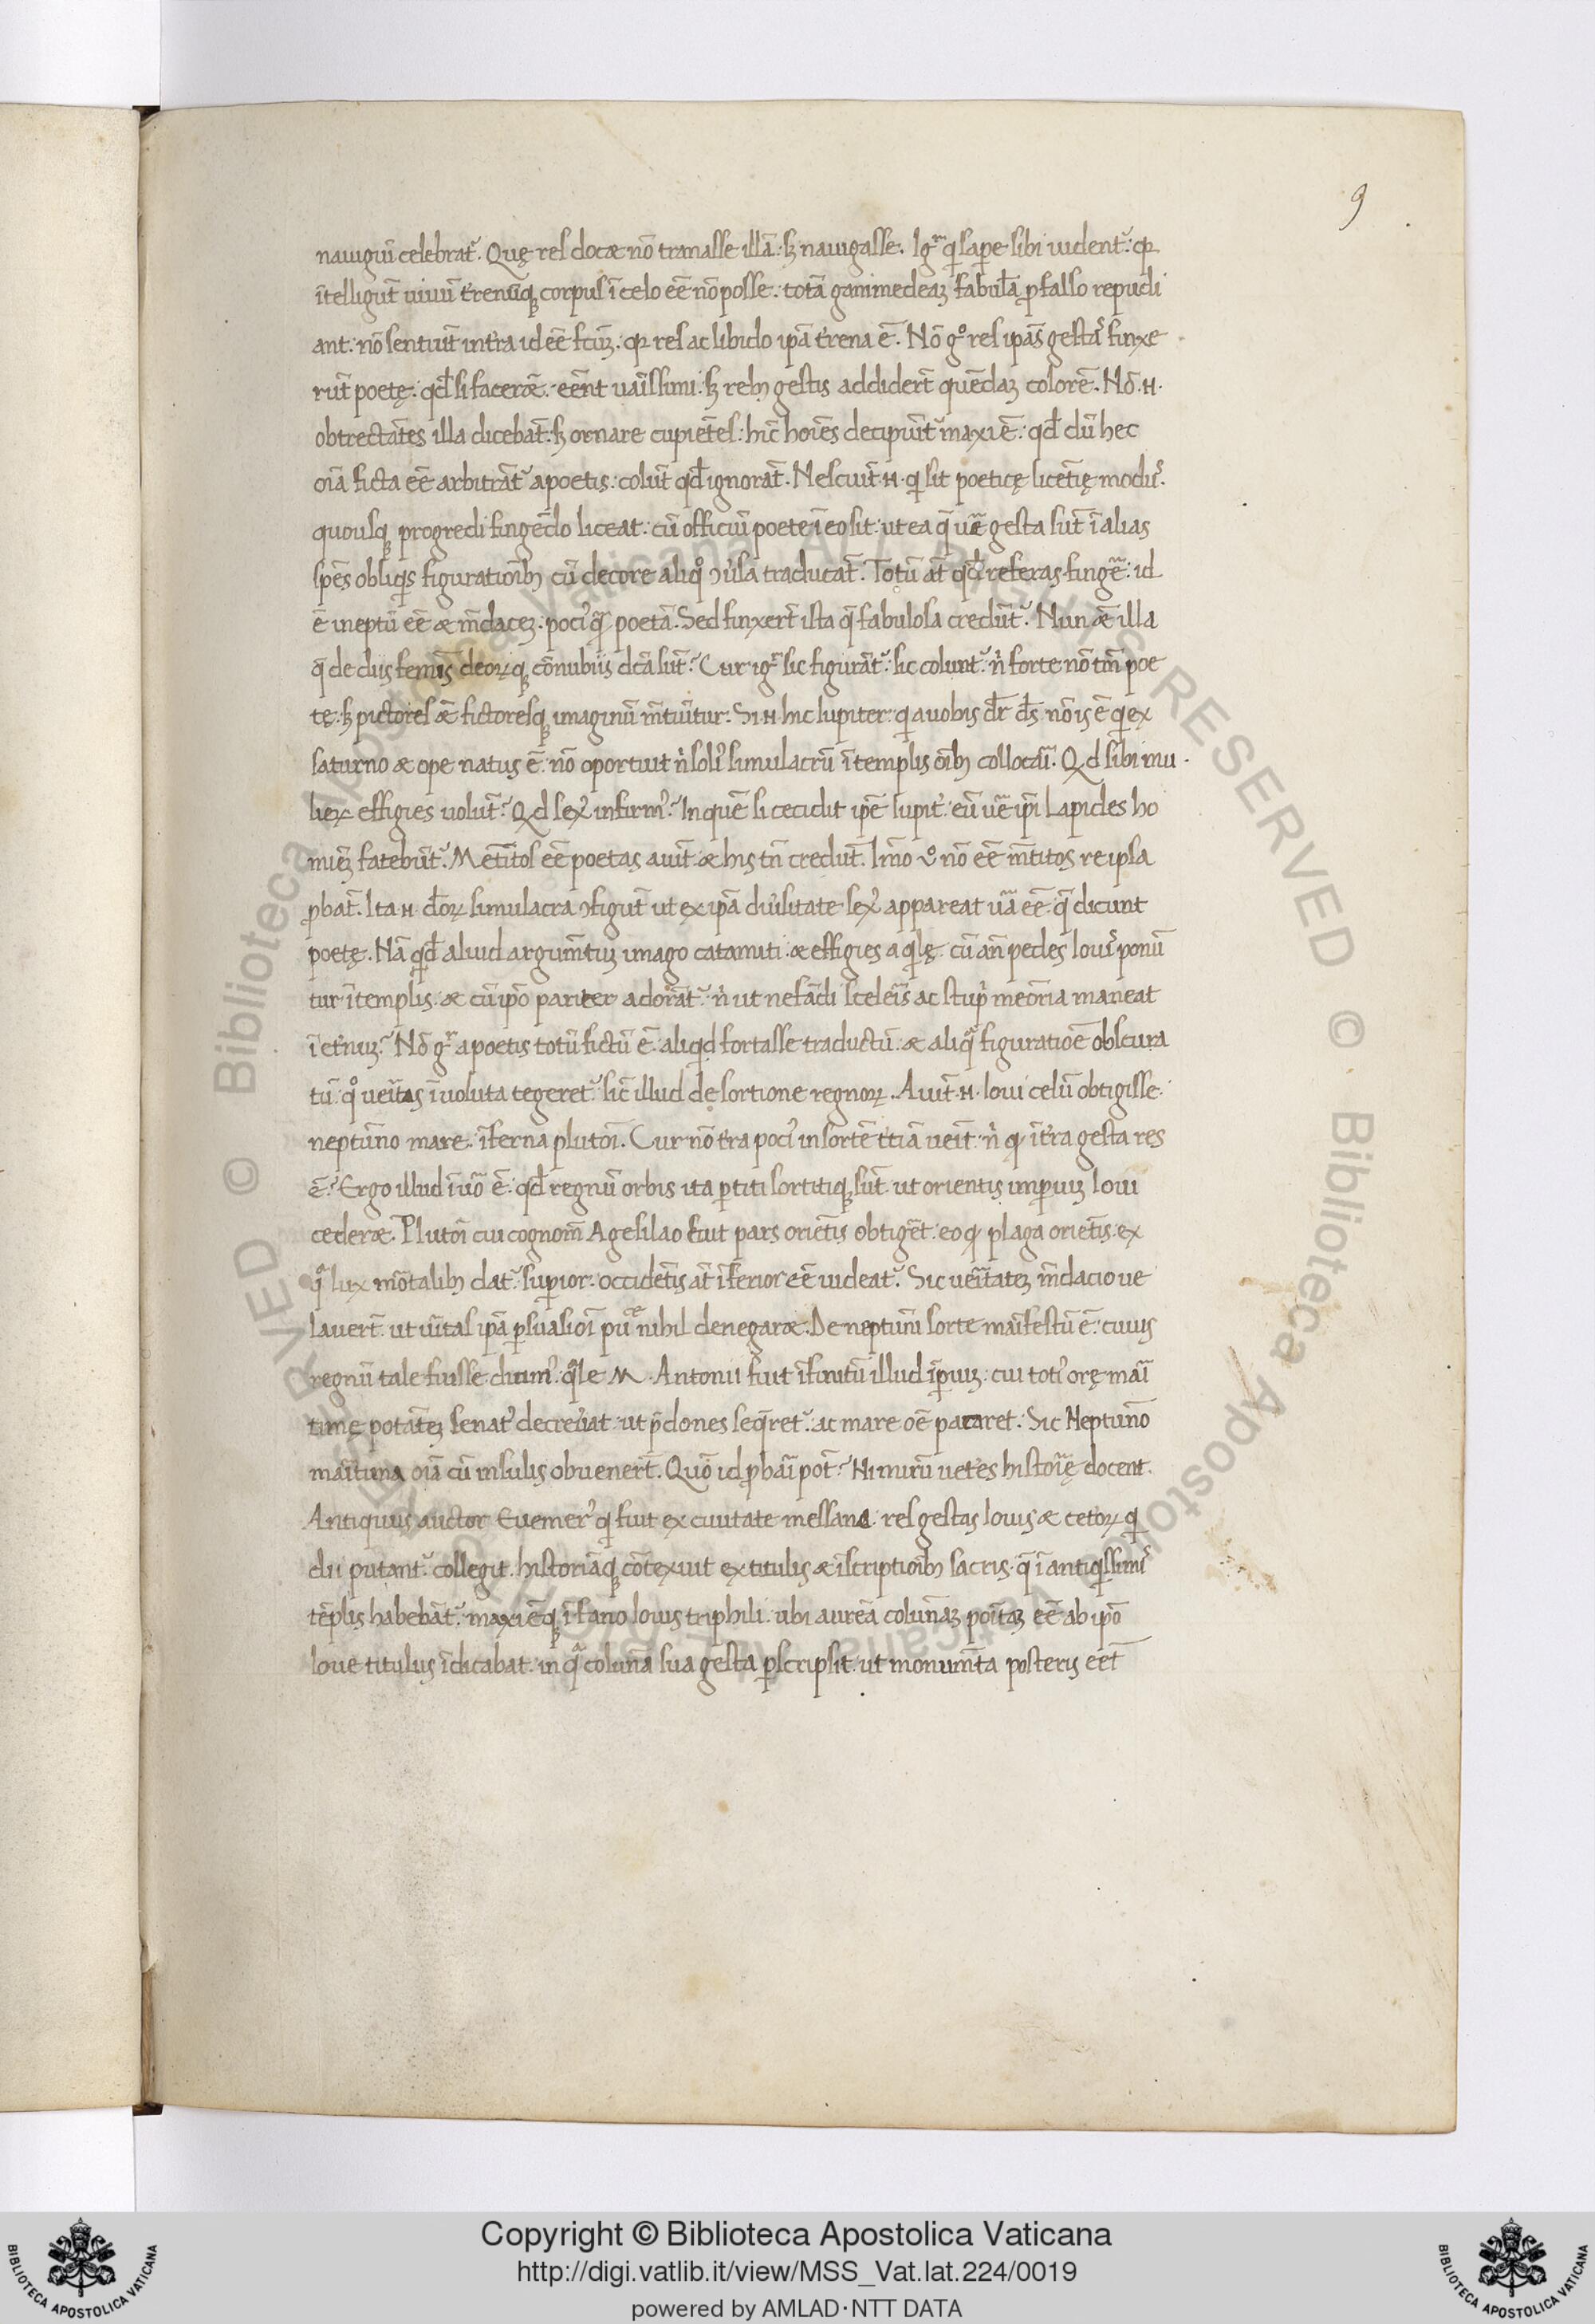 9
nauigiū celebrat᷑. Quę res docæ nō tranasse illā: sꝫ nauigasse. Igr̄ qi sape sibi uident᷑: qꝛ
ītelligūt uiuū t̓renūqꝫ corpus ī celo eē nō posse: totā ganimedeaꝫ fabulā ꝓ falso repudi
ant: nō sentiūt int̓ra id eē fc̄uꝫ: qꝛ res ac libido ipā t̓rena ē. Nō gͦ res ipās gestas finxe
rūt poetę: qđ si facerǣ: eēnt uāissimi: sꝫ rebꝫ gestis addidert̄ quēdaꝫ colorē. Nō .N.
obtrectātes illa dicebāt: sꝫ ornare cupiētes: hīc hoīes decipiūt᷑ maxīe: qđ dū hec
oīa ficta eē arbitrāt᷑ a poetis: colūt qđ ignorāt. Nesciūt .N. qi sit poeticę licētię modus.
quousqꝫ progredi fingēdo liceat: cū officiū poete ī eo sit: ut ea q̄ uē gesta sūt ī alias
spēs obliqis figuratioībꝫ cū decore aliqͦ ꝯuersa traducat̄. Totū at̄ qđ referas fingē: id
ē ineptū eē æ m̄daceꝫ. pociꝰ qᷓ poetā. Sed finxert̄ ista q̄ fabulosa credūt᷑. Nun ǣ illa
q̄ de diis femīs deoꝝqꝫ cōnubiis dc̄a sūt? Cur igr̄ sic figurāt᷑: sic colunt᷑: ni forte nō tm̄ poe
tę: sꝫ pictores ǣ fictoresqꝫ imaginū m̄tiūtur: Si .N. hic Iupiter: qi a uobis dr̄ ds̄: nō is ē qi ex
saturno æ ope natus ē: nō oportuit ni soliꝰ simulacrū ī templis oībꝫ collocāi. Qd sibi mu
lieꝝ effigies uolūt? Qd sexꝰ infirmꝰ? In quē si cecidit ipē Iupit̓: eū uē ipī Lapides ho
mīeꝫ fatebūt᷑. Mētitos eē poetas aiūt: æ his tn̄ credūt. Im̄o uͦ nō eē m̄titos re ipsa
ꝓbāt. Ita .N. dōꝝ simulacra ꝯfigūt ut ex ipā diuersitate sexꝰ appareat uā eē: q̄ dicunt
poetę. Nā qđ aliud argum̄tuꝫ imago catamiti: æ effigies aqilę: cū an̄ pedes Iouis ponū
tur ī templis: æ cū ipō pariter adorāt᷑: ni ut nefādi scelēis ac stupri mēoria maneat
ī et̓nuꝫ? Nō gr̄ a poetis totū fictū ē: aliqd fortasse traductū: æ aliqᷓ figuratiōe obscura
tū: qͦ uēitas īuoluta tegeret᷑: sic̄ illud de sortione regnoꝝ. Aiūt .N. Ioui celū obtigisse:
neptūno mare: īferna plutōi. Cur nō t̓ra pociꝰ in sortē t̓tiā ueīt: ni qꝛ ī t̓ra gesta res
ē? Ergo illud ī uō ē: qđ regnū orbis ita ꝑtiti sortitiqꝫ sūt: ut orientis imꝑiuꝫ Ioui
cederæ. Plutōi cui cognom̄ Agesilao fuit pars oriētis obtigēt: eo qꝛ plaga oriētis: ex
qᷓ lux mōtalibꝫ dat᷑: suꝑior: occidētis at̄ īferior eē uideat᷑. Sic uēitateꝫ m̄dacio ue
lauert̄: ut uītas ipā ꝑsuasiōi pu̅ᵉ nihil denegaræ. De neptūni sorte maīfestū ē: cuius
regnū tale fuisse dicimꝰ: qᷓle M. Antonii fuit īfinitū illud īꝑiuꝫ: cui totiꝰ orę maī
timę potātēꝫ senatꝰ decreuerat: ut p̄dones seq̄ret᷑: ac mare oē pacaret: Sic Neptūno
maītima oīa cū insulis obuenert̄. Quō id ꝓbāi pōt? Nimirū uet̓es histoīę docent.
Antiquus auctor Euemerꝰ qi fuit ex ciuitate messana: res gestas Iouis æ cet̓oꝝ qi
dii putant᷑ collegit: historiāqꝫ cōtexuit ex titulis æ īscriptioībꝫ sacris: q̄ ī antiqissimis
tēplis habebāt᷑: maxīeqꝫ ī fano Iouis triphili: ubi aureā colūnaꝫ poītaꝫ eē ab ipō
Ioue titulus īdicabat: in qᷓ colūna sua gesta ꝑscripsit: ut monum̄ta posteris eēt
RESERVED © Biblioteca Apostolica Vaticana ALL RIGHTS RESERVED © Biblioteca Apostolica Vaticana
BIBLIOTECA APOSTOLICA VATICANA
Copyright © Biblioteca Apostolica Vaticana
http://digi.vatlib.it/view/MSS_Vat.lat.224/0019
powered by AMLAD·NTT DATA
BIBLIOTECA APOSTOLICA VATICANA